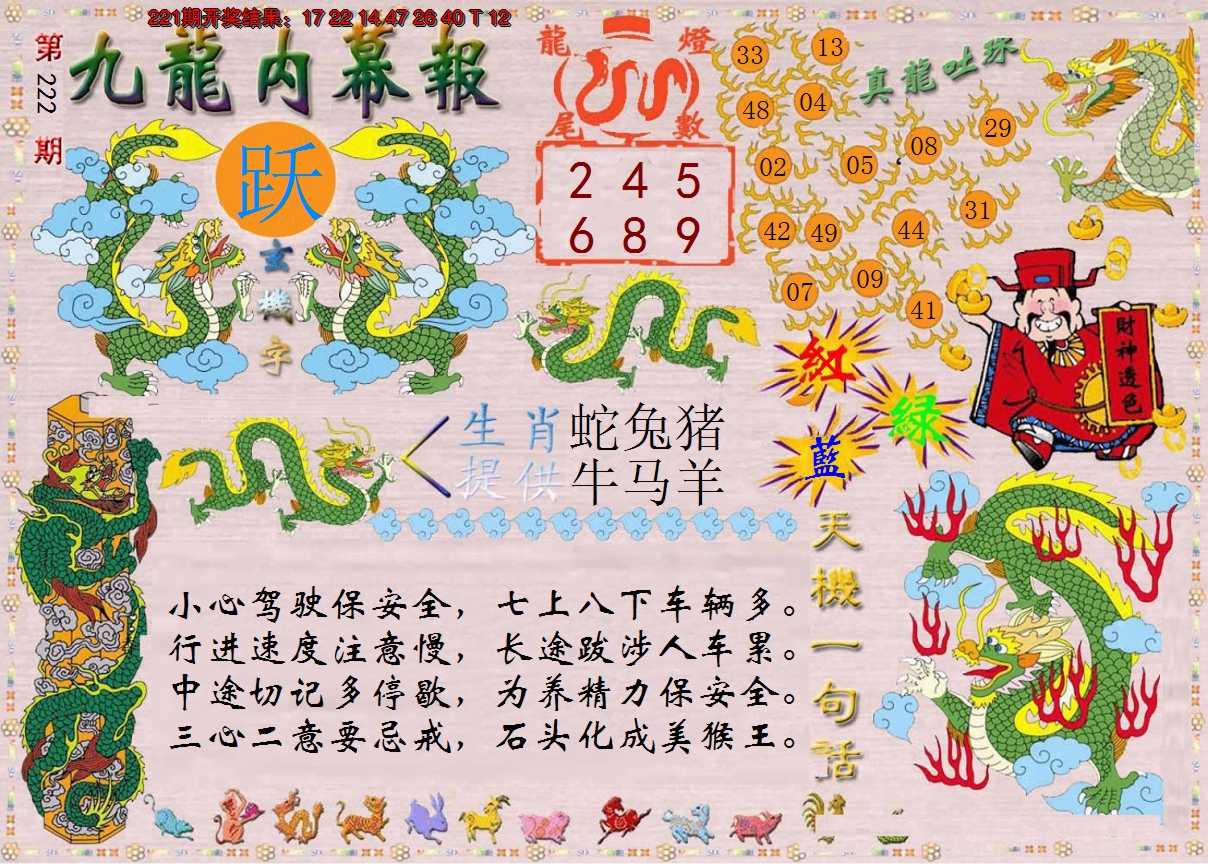 221期开奖结果：17 22 14 47 26 40 T 12
第222期
九龍内幕報
龍燈
尾數
2 4 5
6 8 9
真龍吐珠
33 13
48 04
02 05 08 29
42 49 44 31
07 09 41
跃
玄機字
財神透色
紅
綠
藍
生肖 蛇兔猪
提供 牛马羊
天機一句話
小心驾驶保安全，七上八下车辆多。
行进速度注意慢，长途跋涉人车累。
中途切记多停歇，为养精力保安全。
三心二意要忌戒，石头化成美猴王。